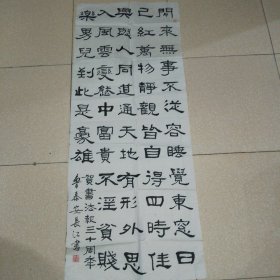 閒來無事不從容睡覺東窗日
已紅萬物靜觀皆自得四時佳
興與人同道通天地有形外思
入風雲變態中富貴不淫貧賤
樂男兒到此是豪雄
賀書法報三十周年
魯泰安長江書